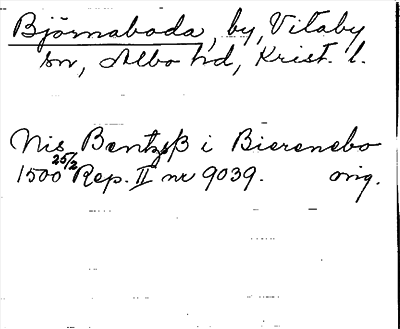 Björnaboda, by, Vitaby
sn, Albo hd, Krist. l.
Nis Bentzsß i Bierenebo
1500 25/2 Rep. II nr 9039. orig.